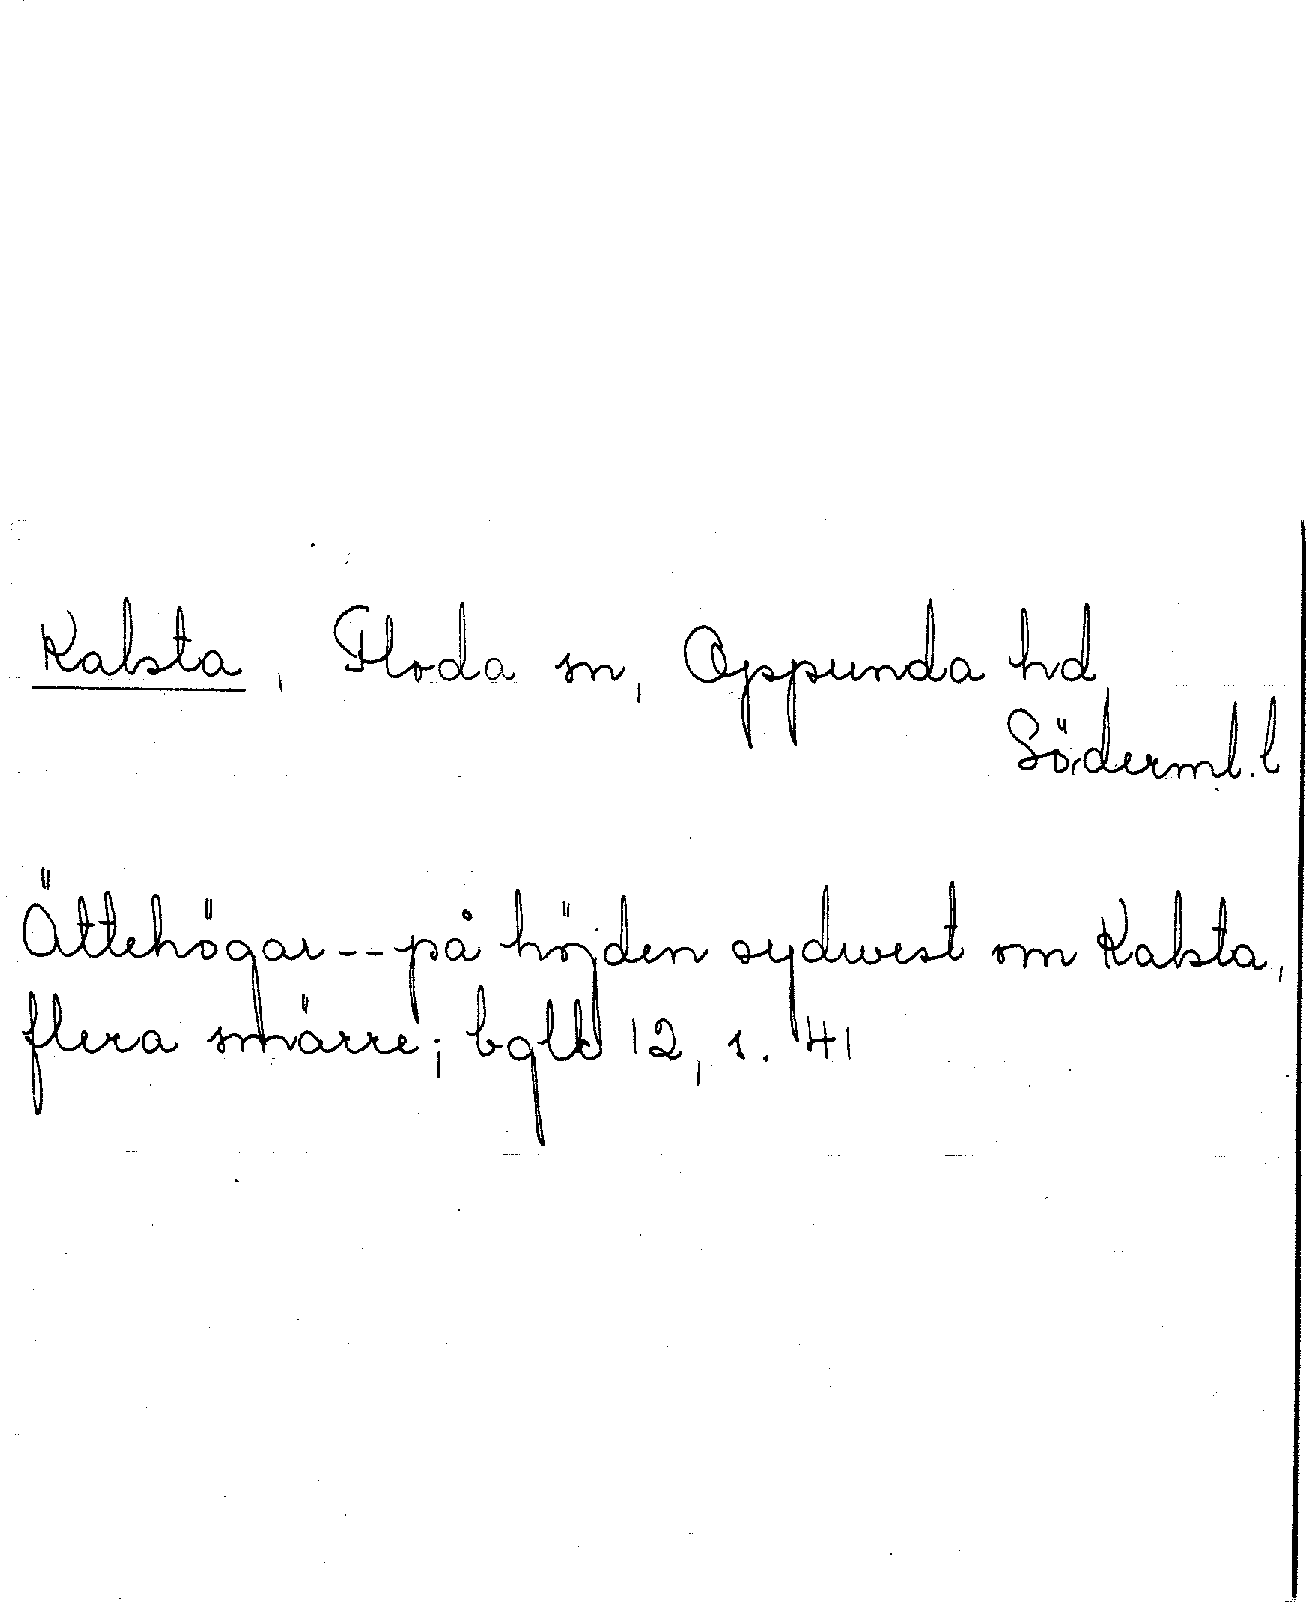 Kalsta, Floda sn, Oppunda hd
Söderml. l
Ättehögar -- på höjden sydwest om Kalsta,
flera smärre; bglbl 12, s. 41